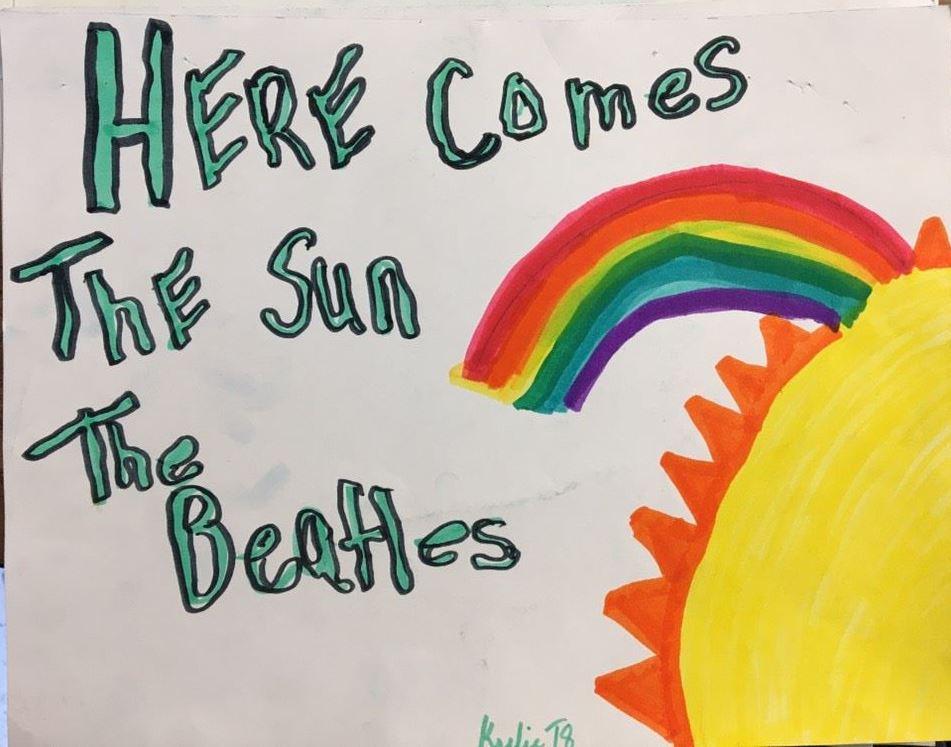 HERE Comes
ThE Sun
The
Beatles
T8